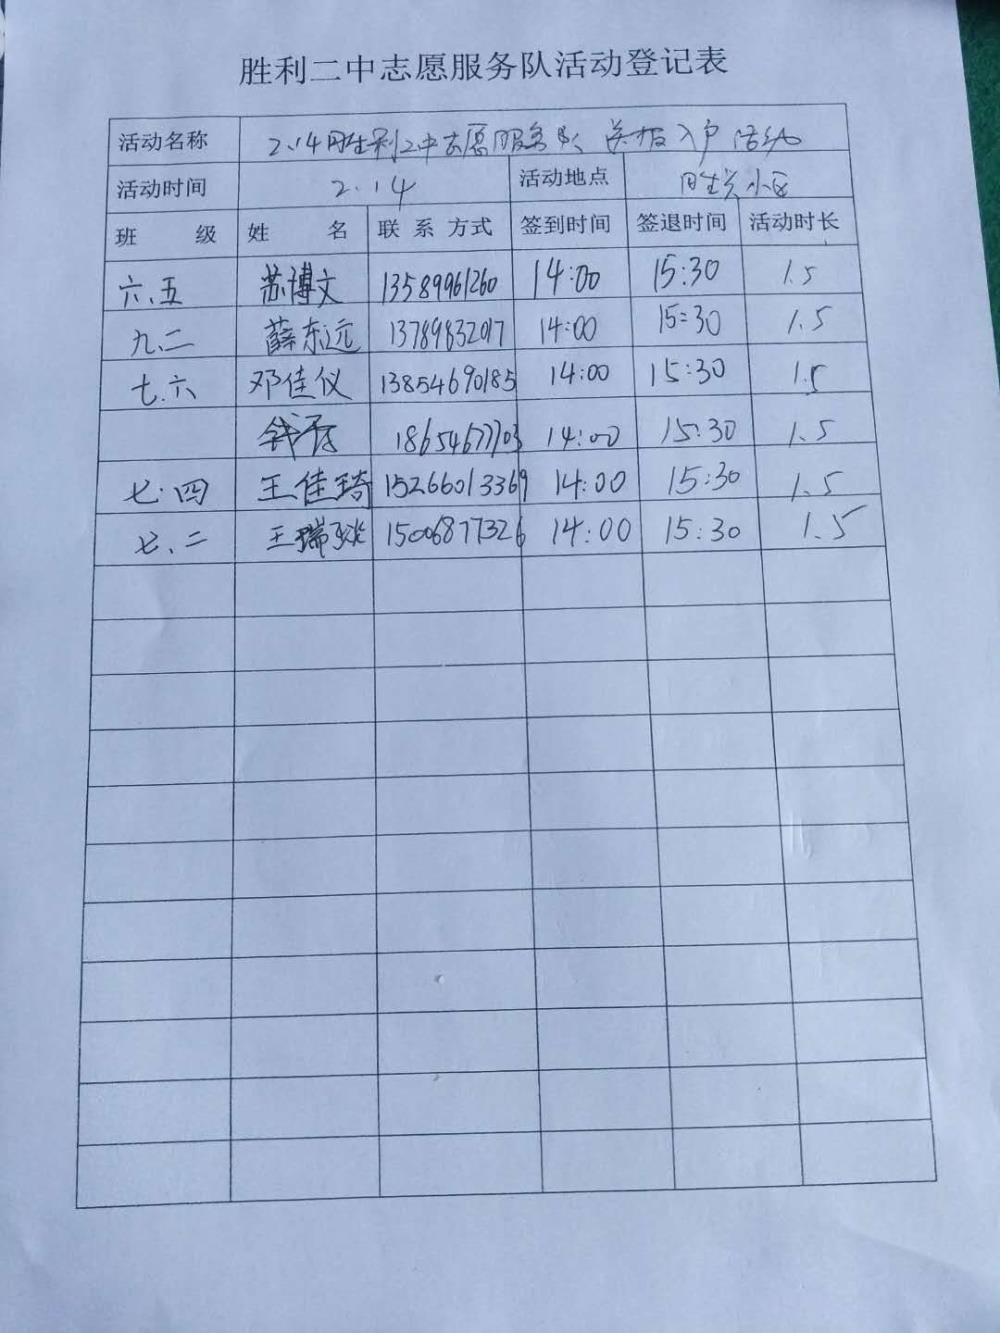 胜利二中志愿服务队活动登记表
活动名称 2.14胜利二中志愿服务队 送报入户活动
活动时间 2.14 活动地点 胜兴小区
班 级 姓 名 联系方式 签到时间 签退时间 活动时长
六.五 苏博文 13589961260 14:00 15:30 1.5
九.二 薛东远 13789832017 14:00 15:30 1.5
七.六 邓佳仪 13854690185 14:00 15:30 1.5
18654677703 14:00 15:30 1.5
七.四 王佳琦 15266013369 14:00 15:30 1.5
七.二 王瑞 15006877326 14:00 15:30 1.5